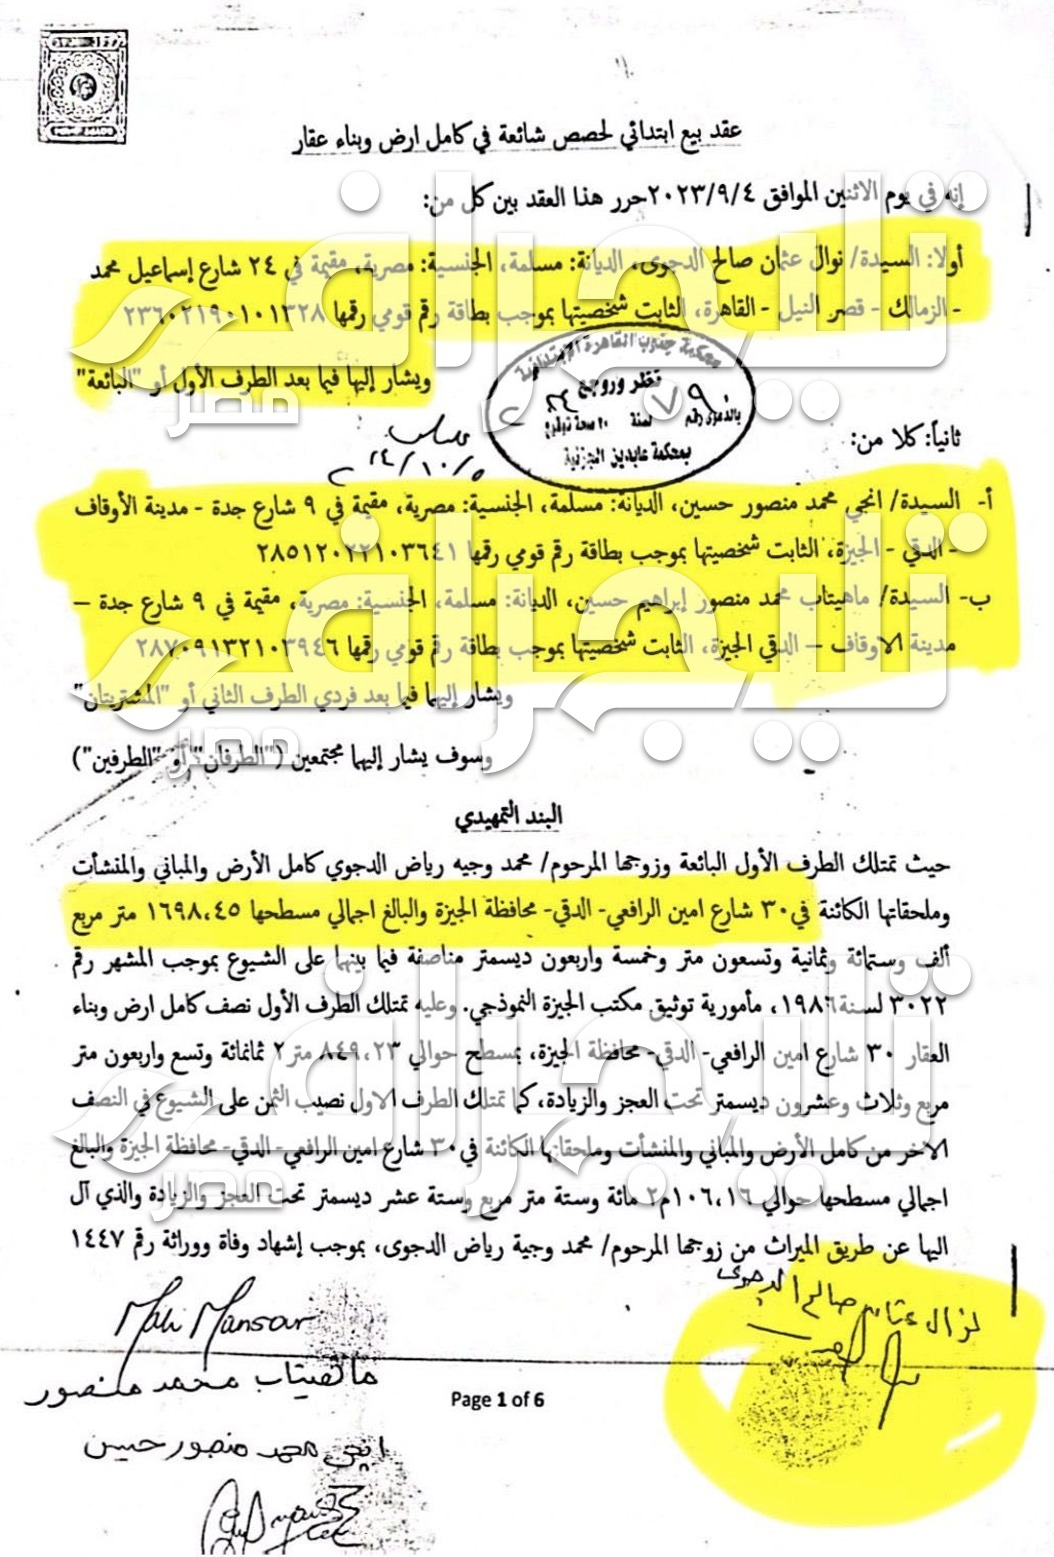 عقد بيع ابتدائي لحصص شائعة في كامل ارض وبناء عقار
إنه في يوم الاثنين الموافق ٢٠٢٣/٩/٤ حرر هذا العقد بين كل من:
أولا: السيدة/ نوال عثمان صالح الدجوى، الديانة: مسلمة، الجنسية: مصرية، مقيمة في ٢٤ شارع إسماعيل محمد
- الزمالك - قصر النيل - القاهرة، الثابت شخصيتها بموجب بطاقة رقم قومي رقمها ٢٣٦٠٢١٩٠١٠١٣٢٨
ويشار إليها فيما بعد الطرف الأول أو "البائعة"
محكمة جنوب القاهرة الابتدائية
نظر وروجع
بالدعوى رقم ٧٩٠ لسنة ٢٠٢٤ صحة توقيع
بمحكمة عابدين الجزئية
٢٠٢٤/١٠/٥
ثانياً: كلا من:
أ- السيدة/ انجي محمد منصور حسين، الديانة: مسلمة، الجنسية: مصرية، مقيمة في ٩ شارع جدة - مدينة الأوقاف
- الدقي - الجيزة، الثابت شخصيتها بموجب بطاقة رقم قومي رقمها ٢٨٥١٢٠٢٢١٠٣٦٤١
ب- السيدة/ ماهيتاب محمد منصور إبراهيم حسين، الديانة: مسلمة، الجنسية: مصرية، مقيمة في ٩ شارع جدة –
مدينة الاوقاف – الدقي الجيزة، الثابت شخصيتها بموجب بطاقة رقم قومي رقمها ٢٨٧٠٩١٣٢١٠٣٩٤٦
ويشار إليهما فيما بعد فردي الطرف الثاني أو "المشتريتان"
وسوف يشار إليهما مجتمعين ("الطرفان" أو "الطرفين")
البند التمهيدي
حيث تمتلك الطرف الأول البائعة وزوجها المرحوم/ محمد وجيه رياض الدجوي كامل الأرض والمباني والمنشأت
وملحقاتها الكائنة في ٣٠ شارع امين الرافعي- الدقي- محافظة الجيزة والبالغ اجمالي مسطحها ١٦٩٨،٤٥ متر مربع
ألف وستمائة وثمانية وتسعون متر وخمسة واربعون ديسمتر مناصفة فيما بينهما على الشيوع بموجب المشهر رقم
٣٠٢٢ لسنة ١٩٨٦، مأمورية توثيق مكتب الجيزة النموذجي. وعليه تمتلك الطرف الأول نصف كامل ارض وبناء
العقار ٣٠ شارع امين الرافعي- الدقي- محافظة الجيزة، بمسطح حوالي ٨٤٩،٢٣ متر٢ ثمانمائة وتسع واربعون متر
مربع وثلاث وعشرون ديسمتر تحت العجز والزيادة، كما تمتلك الطرف الاول نصيب الثمن على الشيوع في النصف
الاخر من كامل الأرض والمباني والمنشأت وملحقاتها الكائنة في ٣٠ شارع امين الرافعي- الدقي- محافظة الجيزة والبالغ
اجمالي مسطحها حوالي ١٠٦،١٦م٢ مائة وستة متر مربع وستة عشر ديسمتر تحت العجز والزيادة والذي آل
اليها عن طريق الميراث من زوجها المرحوم/ محمد وجية رياض الدجوى، بموجب إشهاد وفاة ووراثة رقم ١٤٤٧
نوال عثمان صالح الدجوى
Mahi Mansour
ماهيتاب محمد منصور
Page 1 of 6
انجي محمد منصور حسين
تليجراف مصر
تليجراف مصر
تليجراف مصر